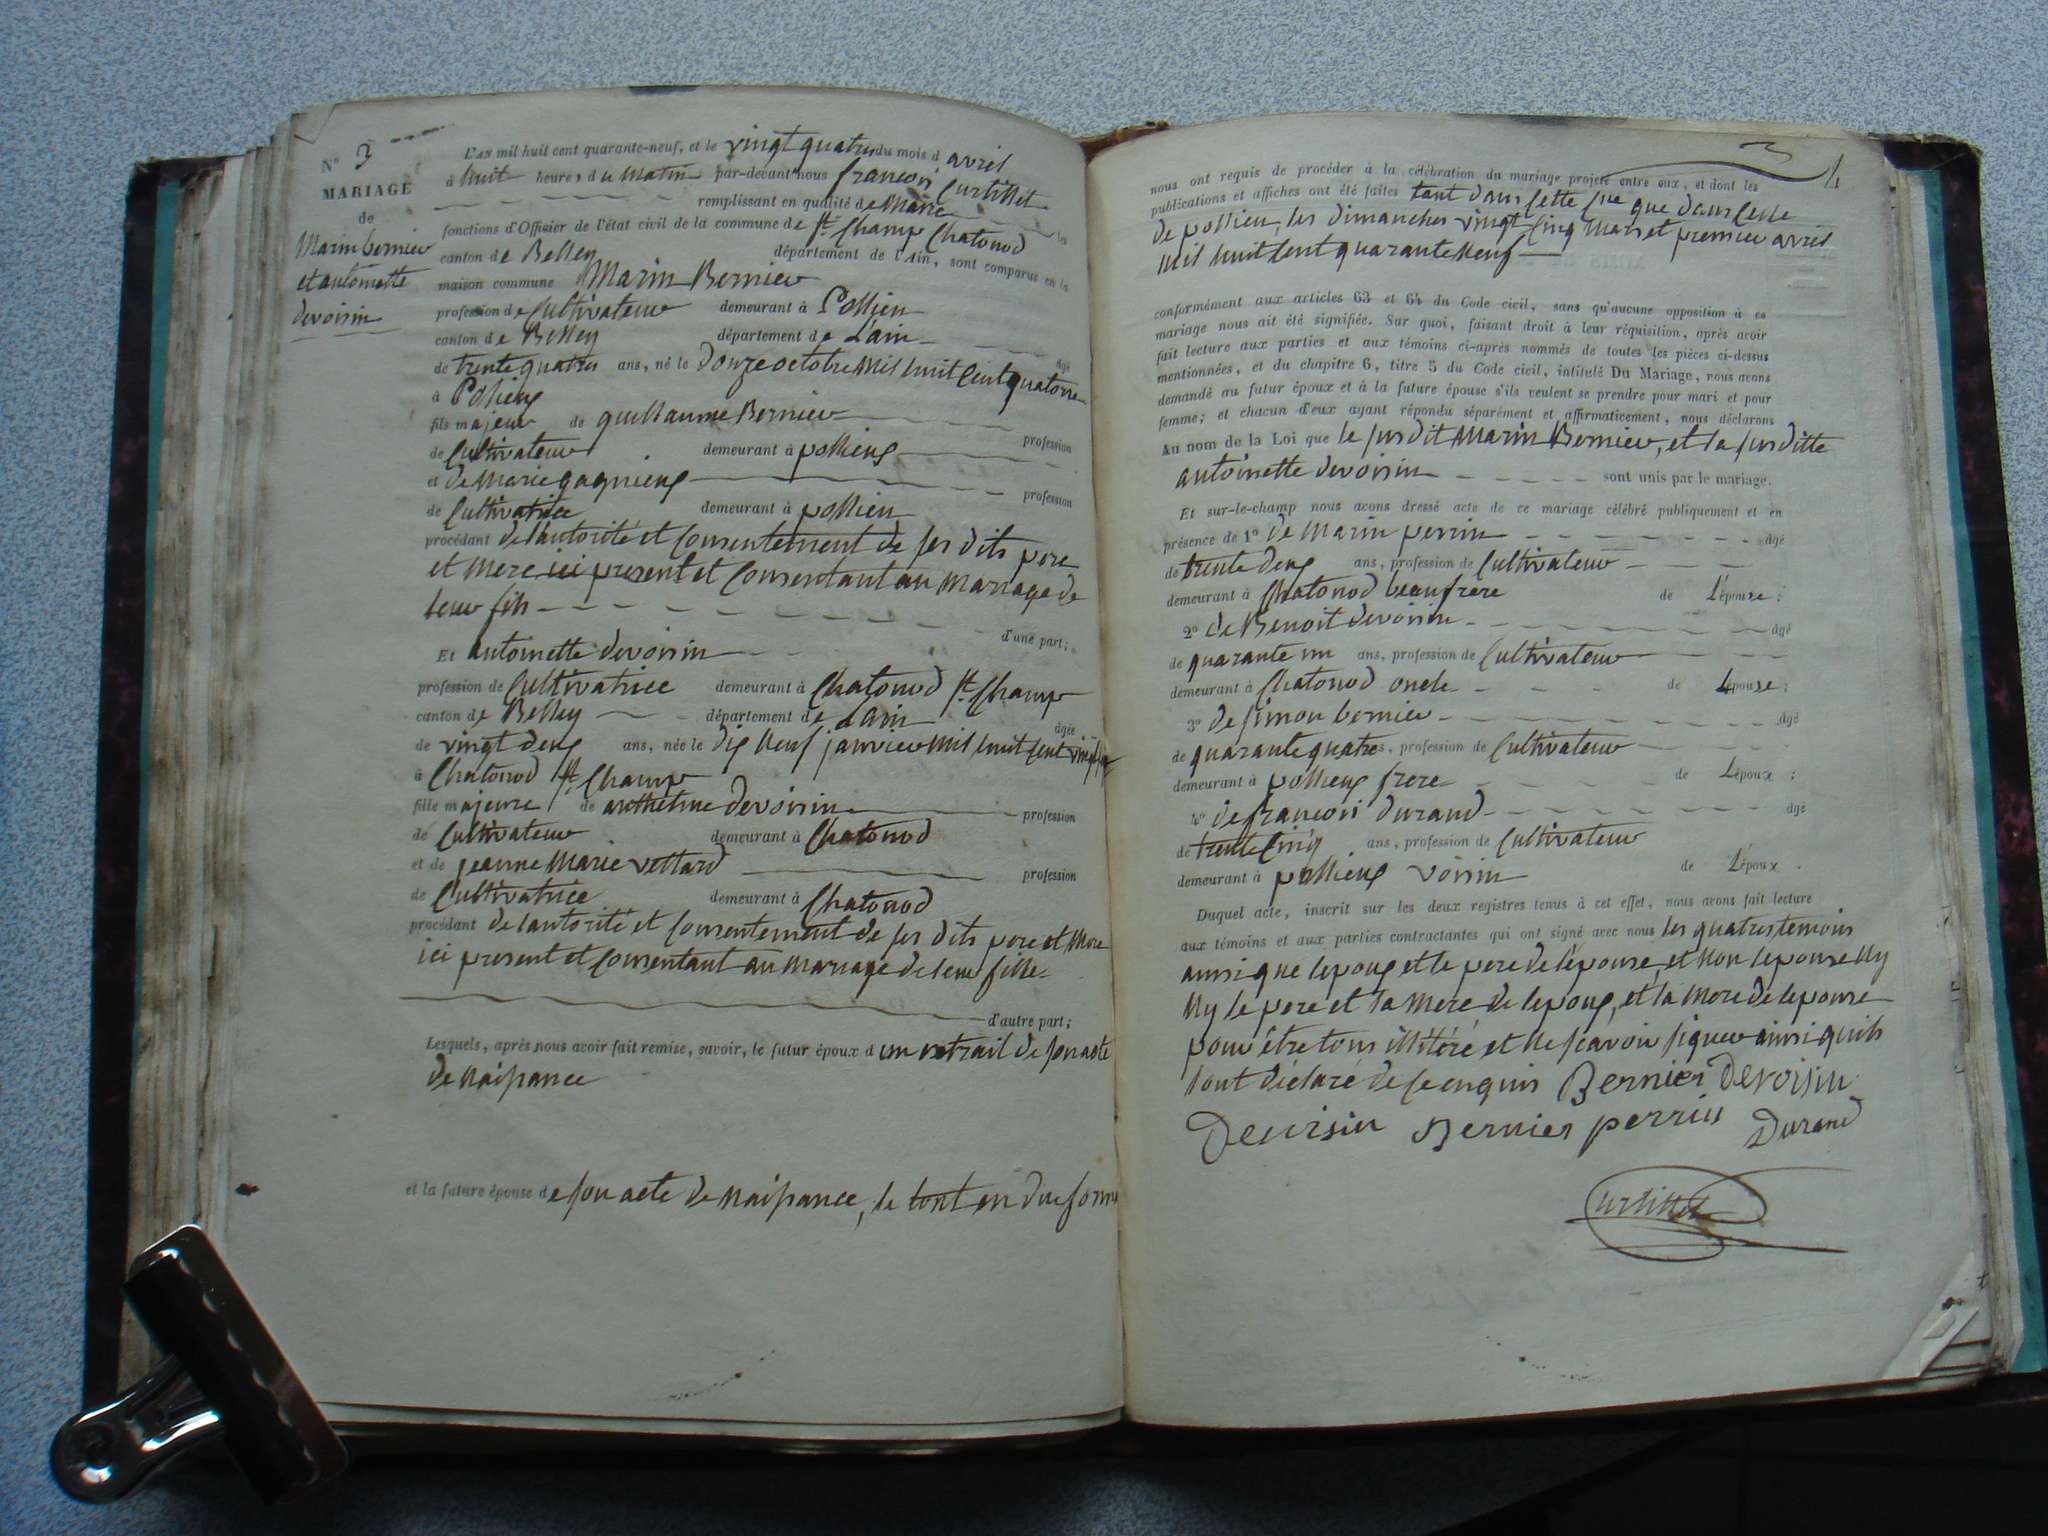 N° 3
MARIAGE
de
Marin bernier
et antoinette
devoisin
L'AN mil huit cent quarante-neuf, et le vingt quatre du mois d avril
à huit heures du matin par-devant nous françois Curtillet
remplissant en qualité de Maire les
fonctions d'Officier de l'état civil de la commune de St Champ Chatonod
canton de Belley département de l'Ain, sont comparus en la
maison commune Marin Bernier
profession de Cultivateur demeurant à Pollieu
canton de Belley département de Lain
de trente quatre ans, né le douze octobre mil huit Cent quatorze âgé
à Pollieux
fils majeur de guillaume Bernier profession
de Cultivateur demeurant à pollieux
et de Marie gagnieux profession
de Cultivatrice demeurant à pollieu
procédant de lautorité et Consentement de ses dits pere
et Mere ici present et Consentant au Mariage de
leur fils
d'une part;
Et antoinette devoisin
profession de Cultivatrice demeurant à Chatonod St Champ
canton de Belley département de Lain
de vingt deux ans, née le dix neuf janvier mil huit Cent vingt sept âgée
à Chatonod St Champ
fille majeure de anthelme devoisin profession
de Cultivateur demeurant à Chatonod
et de jeanne Marie vettard profession
de Cultivatrice demeurant à Chatonod
procédant de lautorité et Consentement de ses dits pere et Mere
ici present et Consentant au Mariage de leur fille
d'autre part;
Lesquels, après nous avoir fait remise, savoir, le futur époux d un extrait de son acte
de Naissance
et la future épouse de son acte de Naissance, le tout en due forme
3
4
nous ont requis de procéder à la célébration du mariage projeté entre eux, et dont les
publications et affiches ont été faites tant dans Cette Cne que dans Celle
de pollieu, les dimanches vingt Cinq Mars et premier avril
Mil huit Cent quarante Neuf
conformément aux articles 63 et 64 du Code civil, sans qu'aucune opposition à ce
mariage nous ait été signifiée. Sur quoi, faisant droit à leur réquisition, après avoir
fait lecture aux parties et aux témoins ci-après nommés de toutes les pièces ci-dessus
mentionnées, et du chapitre 6, titre 5 du Code civil, intitulé Du Mariage, nous avons
demandé au futur époux et à la future épouse s'ils veulent se prendre pour mari et pour
femme; et chacun d'eux ayant répondu séparément et affirmativement, nous déclarons
Au nom de la Loi que le susdit Marin Bernier, et la susditte
antoinette devoisin sont unis par le mariage.
Et sur-le-champ nous avons dressé acte de ce mariage célébré publiquement et en
présence de 1° de Marin perrin âgé
de trente deux ans, profession de Cultivateur
demeurant à Chatonod beaufrere de L'épouse;
2° de Benoit devoisin âgé
de quarante un ans, profession de Cultivateur
demeurant à Chatonod oncle de Lépouse;
3° de simon bernier âgé
de quarante quatre ans, profession de Cultivateur
demeurant à pollieux frere de Lépoux;
4° de françois durand âgé
de trente Cinq ans, profession de Cultivateur
demeurant à pollieux voisin de L'époux.
Duquel acte, inscrit sur les deux registres tenus à cet effet, nous avons fait lecture
aux témoins et aux parties contractantes qui ont signé avec nous les quatres temoins
ainsi que lepoux et le pere de lépouse, et Non lepouse Ny
Ny le pere et la Mere de lepoux, et la Mere de lepouse
pour être tous illitéré et Ne scavoir signer ainsi quils
lont déclaré de Ce enquis Bernier Devoisin
Devoisin Bernier perrin Durand
Curtillet